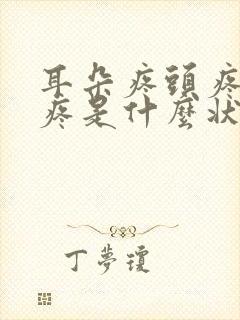 耳朵疼頭疼
疼是什麼狀
丁夢瓊